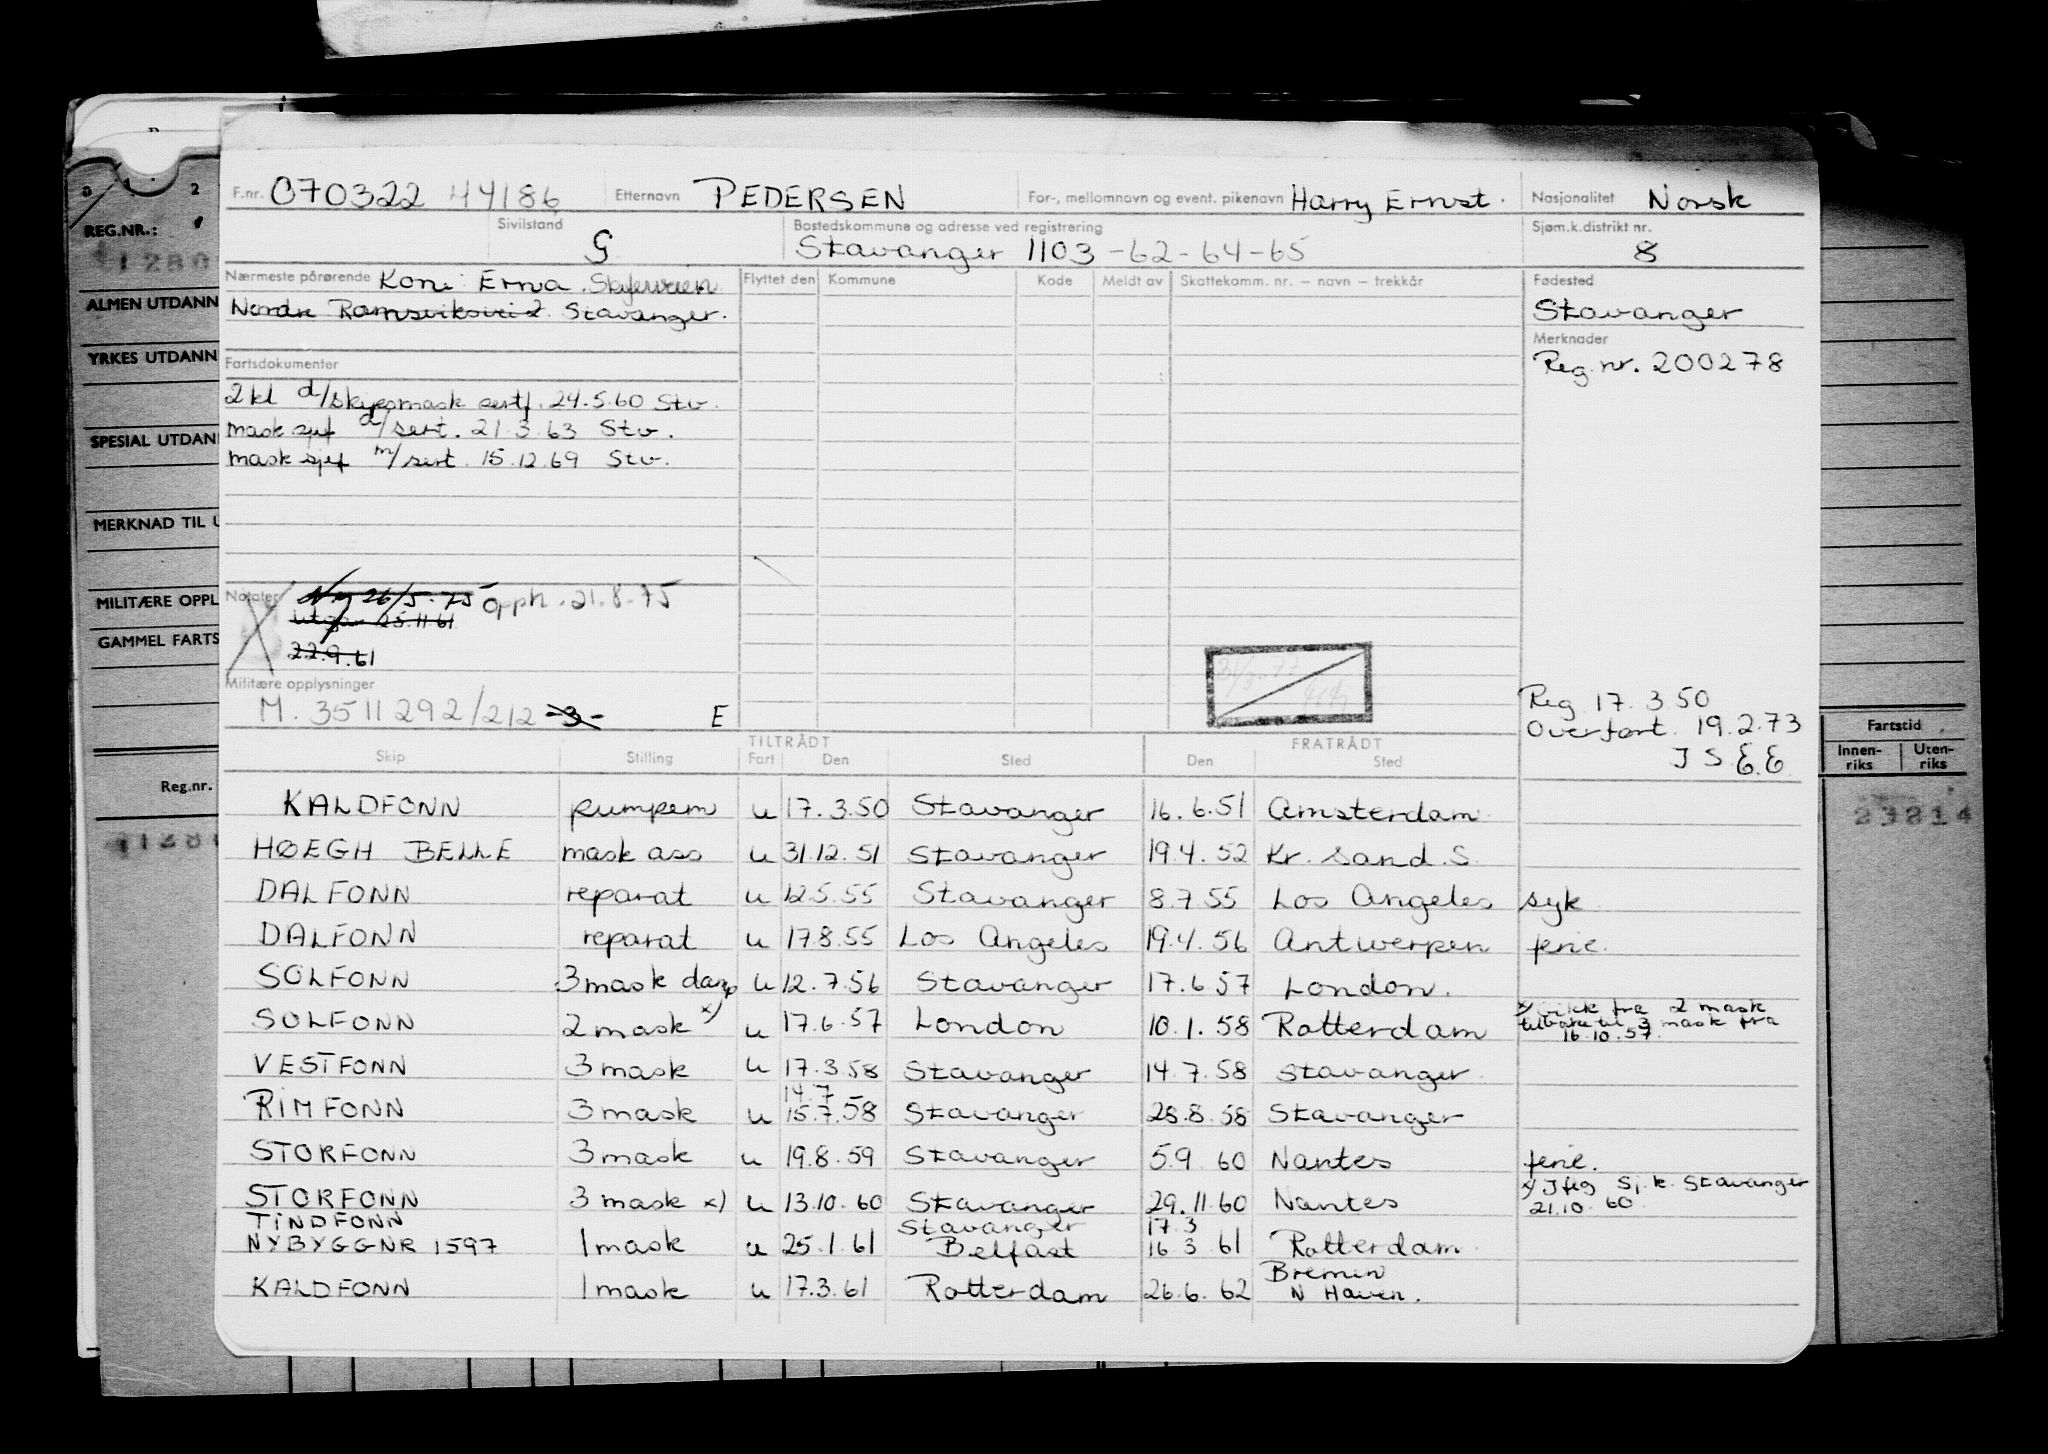 F.nr. 070322 44186 Etternavn PEDERSEN For-, mellomnavn og event. pikenavn Harry Ernst. Nasjonalitet Norsk
Sivilstand G Bostedskommune og adresse ved registrering Stavanger 1103-62-64-65 Sjøm.k.distrikt nr. 8
Nærmeste pårørende Kone: Erna. Flyttet den Kommune Kode Meldt av Skattekomm. nr. – navn – trekkår Fødested
Nordre Ramsviksvei 2. Stavanger. Stavanger
Merknader
Fartsdokumenter Reg. nr. 200278
2 kl d/skipsmask sertf. 24.5.60 Stv.
mask sjef d/sert. 21.3.63 Stv.
mask sjef m/sert. 15.12.69 Stv.
Notater Ny 26/5-75 opph. 21.8-75
utgår 25.11.61
22.9.61
Militære opplysninger
M. 3511292/212 -3- E
Reg. 17.3.50
Overført. 19.2.73
J S. E.E.
TILTRÅDT FRATRÅDT
Skip Stilling Fart Den Sted Den Sted
KALDFONN pumpem u 17.3.50 Stavanger 16.6.51 Amsterdam
HØEGH BELLE mask ass u 31.12.51 Stavanger 19.4.52 Kr. Sand. S.
DALFONN reparat u 12.5.55 Stavanger 8.7.55 Los Angeles syk
DALFONN reparat u 17.8.55 Los Angeles 19.4.56 Antwerpen ferie.
SOLFONN 3 mask damp u 12.7.56 Stavanger 17.6.57 London.
SOLFONN 2 mask x) u 17.6.57 London 10.1.58 Rotterdam x) gikk fra 2 mask
tilbake til 3 mask fra
16.10.57.
VESTFONN 3 mask u 17.3.58 Stavanger 14.7.58 Stavanger
14.7
RIMFONN 3 mask u 15.7.58 Stavanger 28.8.58 Stavanger
STORFONN 3 mask u 19.8.59 Stavanger 5.9.60 Nantes ferie.
STORFONN 3 mask x) u 13.10.60 Stavanger 29.11.60 Nantes x) Iflg Sj.k. Stavanger
21.10.60.
TINDFONN Stavanger 17.3
NYBYGGNR 1597 1 mask u 25.1.61 Belfast 16.3.61 Rotterdam
Bremen
KALDFONN 1 mask u 17.3.61 Rotterdam 26.6.62 N Haven.
REG.NR.:
ALMEN UTDANN
YRKES UTDANN
SPESIAL UTDAN
MERKNAD TIL U
MILITÆRE OPPL
GAMMEL FARTS
Reg.nr.
Fartstid
Innen-riks Uten-riks
23214